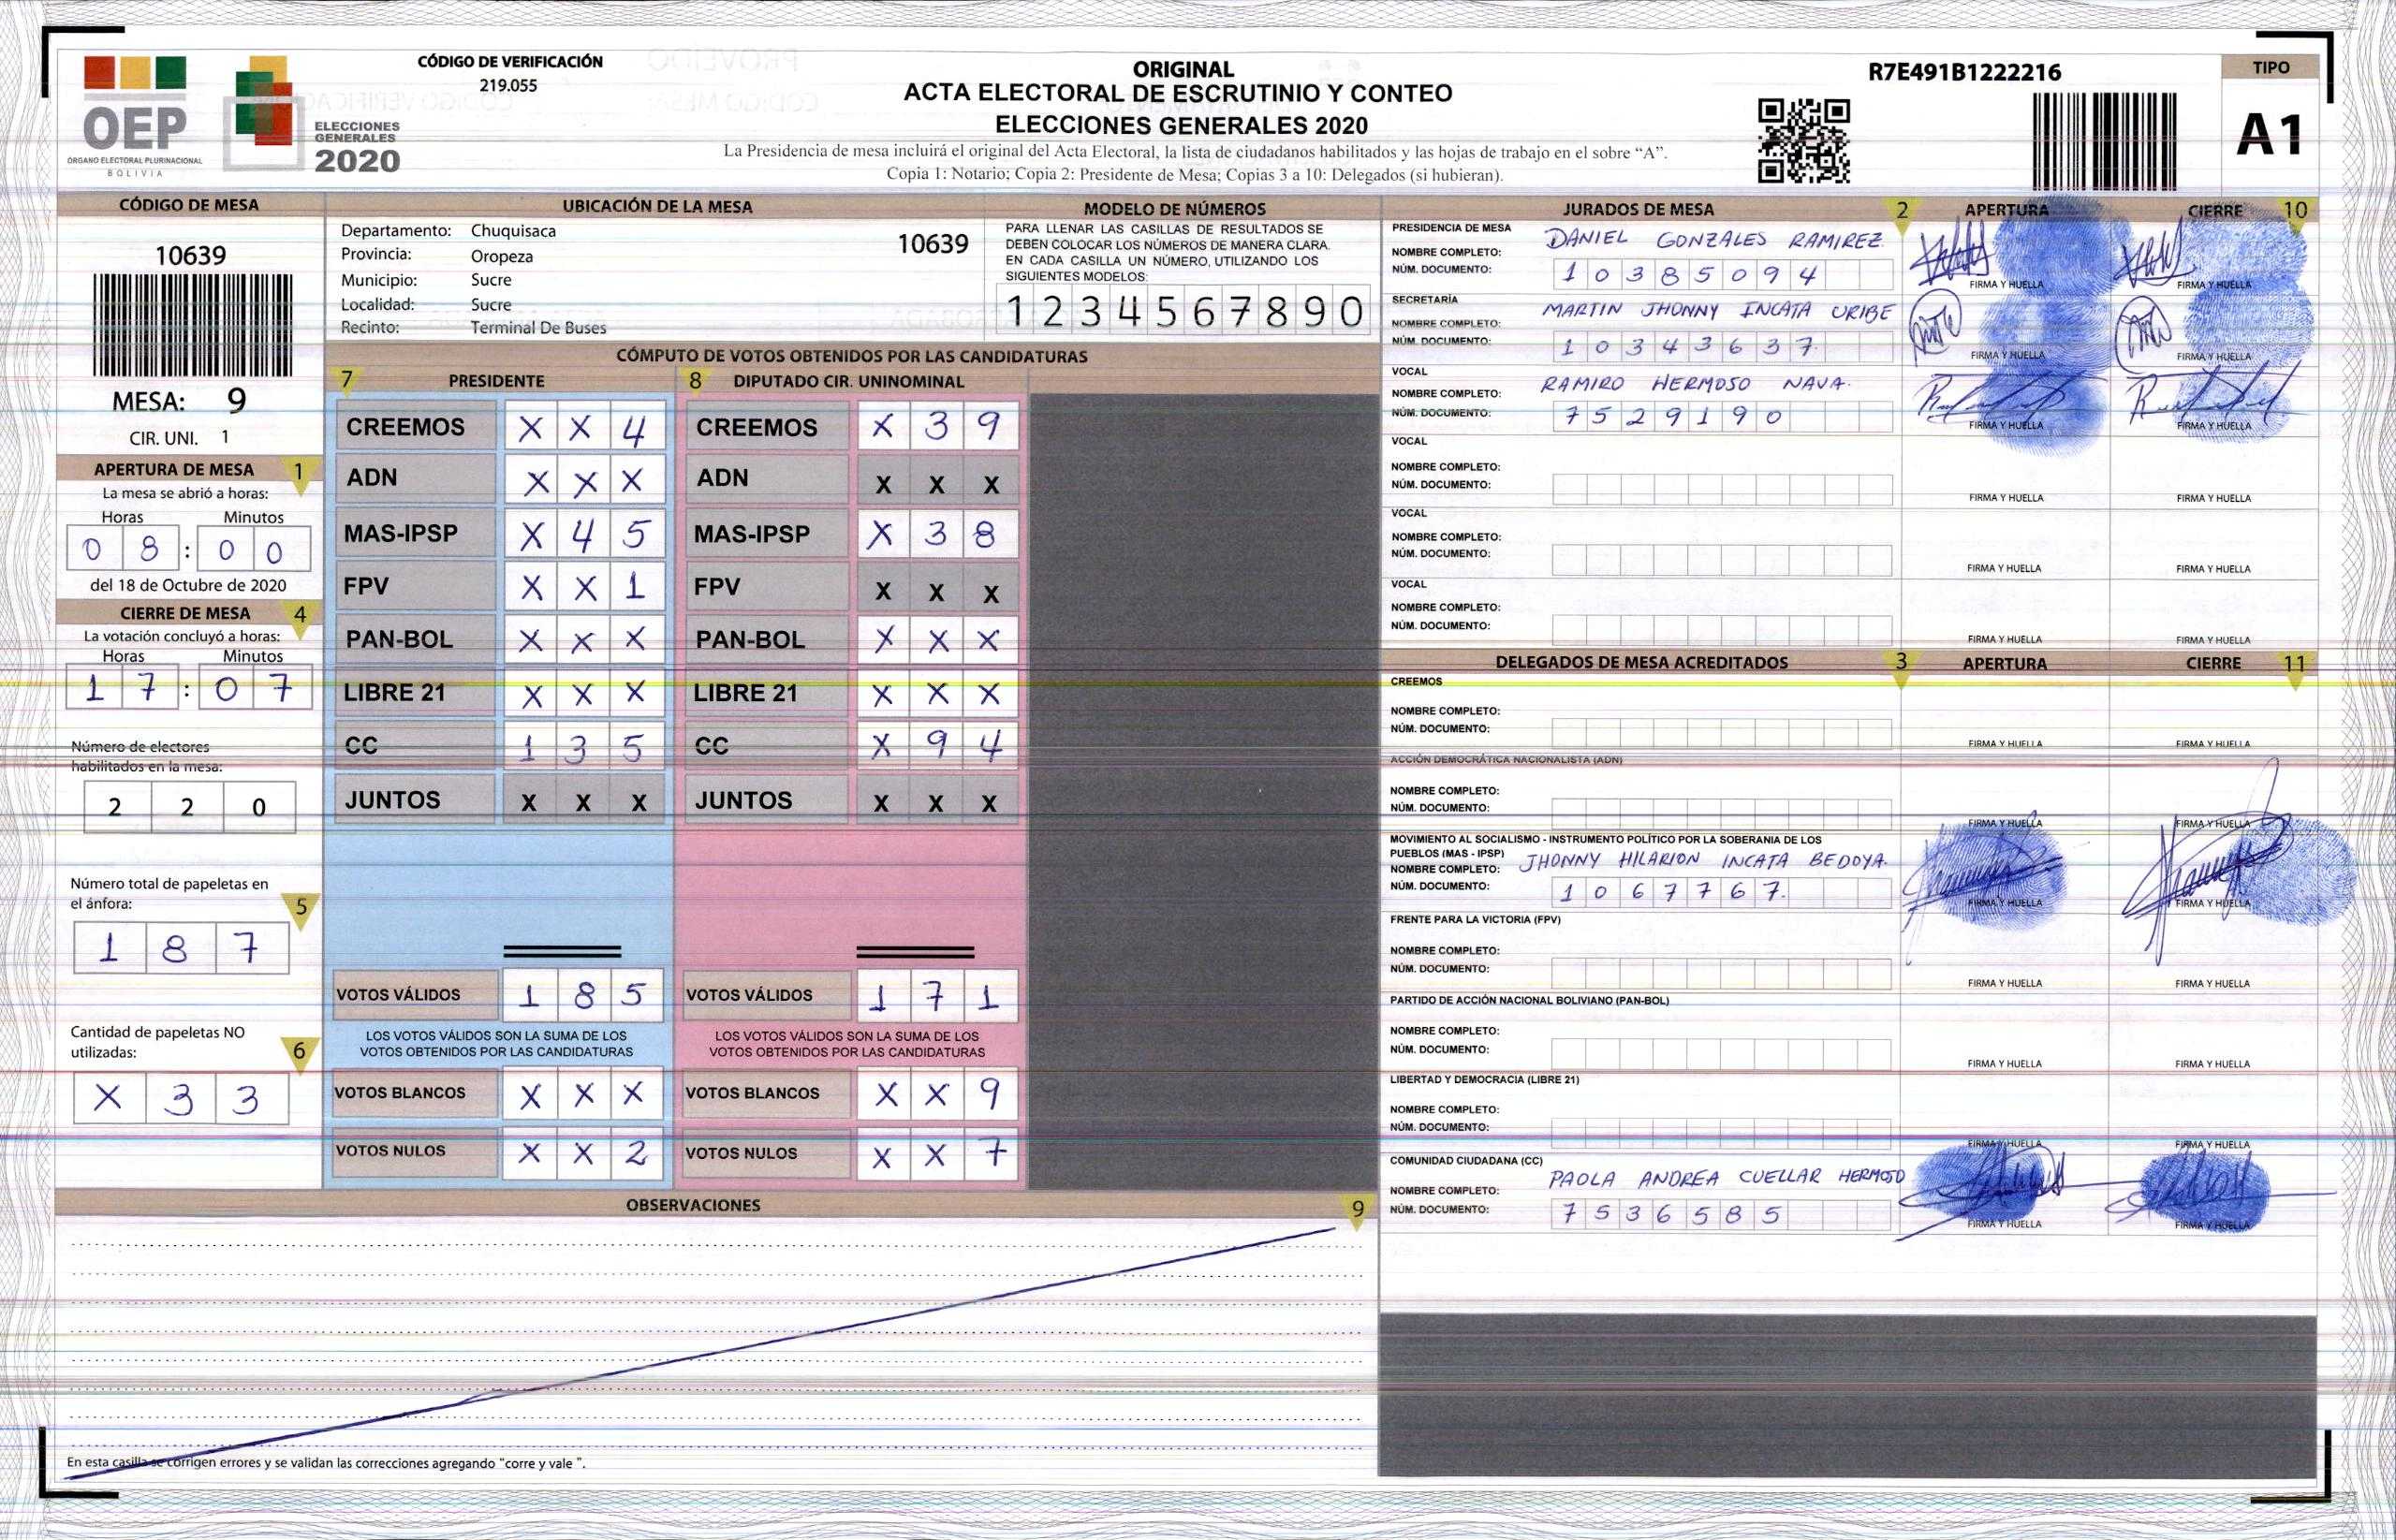 CÓDIGO DE VERIFICACIÓN
219.055
OEP
ORGANO ELECTORAL PLURINACIONAL
BOLIVIA
ELECCIONES
GENERALES
2020
ORIGINAL
ACTA ELECTORAL DE ESCRUTINIO Y CONTEO
ELECCIONES GENERALES 2020
La Presidencia de mesa incluirá el original del Acta Electoral, la lista de ciudadanos habilitados y las hojas de trabajo en el sobre “A”.
Copia 1: Notario; Copia 2: Presidente de Mesa; Copias 3 a 10: Delegados (si hubieran).
R7E491B1222216
TIPO
A1
CÓDIGO DE MESA
10639
MESA: 9
CIR. UNI. 1
APERTURA DE MESA 1
La mesa se abrió a horas:
Horas Minutos
0 8 : 0 0
del 18 de Octubre de 2020
CIERRE DE MESA 4
La votación concluyó a horas:
Horas Minutos
1 7 : 0 7
Número de electores
habilitados en la mesa:
2 2 0
Número total de papeletas en
el ánfora: 5
1 8 7
Cantidad de papeletas NO
utilizadas: 6
X 3 3
UBICACIÓN DE LA MESA
Departamento: Chuquisaca
10639
Provincia: Oropeza
Municipio: Sucre
Localidad: Sucre
Recinto: Terminal De Buses
MODELO DE NÚMEROS
PARA LLENAR LAS CASILLAS DE RESULTADOS SE
DEBEN COLOCAR LOS NÚMEROS DE MANERA CLARA.
EN CADA CASILLA UN NÚMERO, UTILIZANDO LOS
SIGUIENTES MODELOS:
1 2 3 4 5 6 7 8 9 0
CÓMPUTO DE VOTOS OBTENIDOS POR LAS CANDIDATURAS
7 PRESIDENTE
CREEMOS X X 4
ADN X X X
MAS-IPSP X 4 5
FPV X X 1
PAN-BOL X X X
LIBRE 21 X X X
CC 1 3 5
JUNTOS X X X
VOTOS VÁLIDOS 1 8 5
LOS VOTOS VÁLIDOS SON LA SUMA DE LOS
VOTOS OBTENIDOS POR LAS CANDIDATURAS
VOTOS BLANCOS X X X
VOTOS NULOS X X 2
8 DIPUTADO CIR. UNINOMINAL
CREEMOS X 3 9
ADN X X X
MAS-IPSP X 3 8
FPV X X X
PAN-BOL X X X
LIBRE 21 X X X
CC X 9 4
JUNTOS X X X
VOTOS VÁLIDOS 1 7 1
LOS VOTOS VÁLIDOS SON LA SUMA DE LOS
VOTOS OBTENIDOS POR LAS CANDIDATURAS
VOTOS BLANCOS X X 9
VOTOS NULOS X X 7
OBSERVACIONES 9
En esta casilla se corrigen errores y se validan las correcciones agregando “corre y vale ”.
JURADOS DE MESA 2 APERTURA CIERRE 10
PRESIDENCIA DE MESA
NOMBRE COMPLETO: DANIEL GONZALES RAMIREZ.
NÚM. DOCUMENTO: 1 0 3 8 5 0 9 4
FIRMA Y HUELLA FIRMA Y HUELLA
SECRETARÍA
NOMBRE COMPLETO: MARTIN JHONNY INCATA URIBE
NÚM. DOCUMENTO: 1 0 3 4 3 6 3 7.
FIRMA Y HUELLA FIRMA Y HUELLA
VOCAL
NOMBRE COMPLETO: RAMIRO HERMOSO NAVA.
NÚM. DOCUMENTO: 7 5 2 9 1 9 0
FIRMA Y HUELLA FIRMA Y HUELLA
VOCAL
NOMBRE COMPLETO:
NÚM. DOCUMENTO:
FIRMA Y HUELLA FIRMA Y HUELLA
VOCAL
NOMBRE COMPLETO:
NÚM. DOCUMENTO:
FIRMA Y HUELLA FIRMA Y HUELLA
VOCAL
NOMBRE COMPLETO:
NÚM. DOCUMENTO:
FIRMA Y HUELLA FIRMA Y HUELLA
DELEGADOS DE MESA ACREDITADOS 3 APERTURA CIERRE 11
CREEMOS
NOMBRE COMPLETO:
NÚM. DOCUMENTO:
FIRMA Y HUELLA FIRMA Y HUELLA
ACCIÓN DEMOCRÁTICA NACIONALISTA (ADN)
NOMBRE COMPLETO:
NÚM. DOCUMENTO:
FIRMA Y HUELLA FIRMA Y HUELLA
MOVIMIENTO AL SOCIALISMO - INSTRUMENTO POLÍTICO POR LA SOBERANIA DE LOS
PUEBLOS (MAS - IPSP)
NOMBRE COMPLETO: JHONNY HILARION INCATA BEDOYA.
NÚM. DOCUMENTO: 1 0 6 7 7 6 7.
FIRMA Y HUELLA FIRMA Y HUELLA
FRENTE PARA LA VICTORIA (FPV)
NOMBRE COMPLETO:
NÚM. DOCUMENTO:
FIRMA Y HUELLA FIRMA Y HUELLA
PARTIDO DE ACCIÓN NACIONAL BOLIVIANO (PAN-BOL)
NOMBRE COMPLETO:
NÚM. DOCUMENTO:
FIRMA Y HUELLA FIRMA Y HUELLA
LIBERTAD Y DEMOCRACIA (LIBRE 21)
NOMBRE COMPLETO:
NÚM. DOCUMENTO:
FIRMA Y HUELLA FIRMA Y HUELLA
COMUNIDAD CIUDADANA (CC)
NOMBRE COMPLETO: PAOLA ANDREA CUELLAR HERMOSO
NÚM. DOCUMENTO: 7 5 3 6 5 8 5
FIRMA Y HUELLA FIRMA Y HUELLA